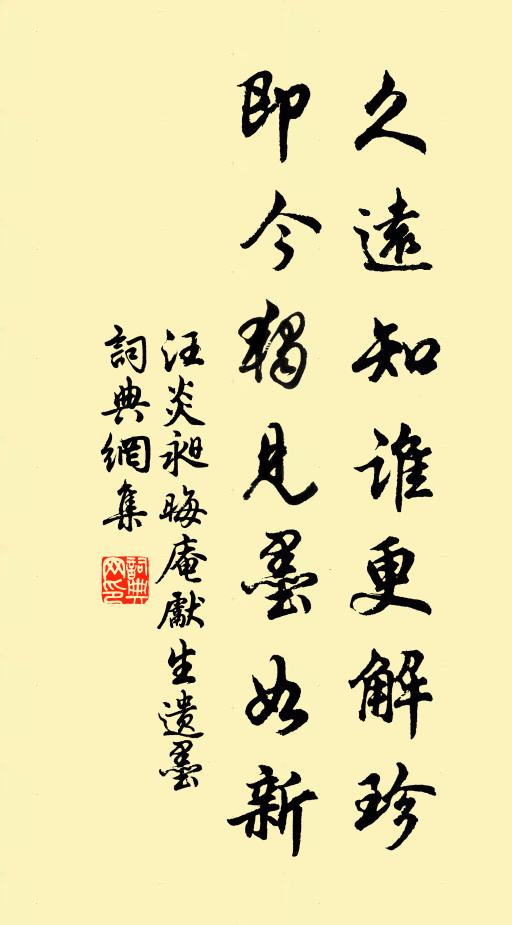 久遠知誰更解珍
即今獨見墨如新
汪炎昶晦庵獻生遺墨
詞典網集
詞典網印